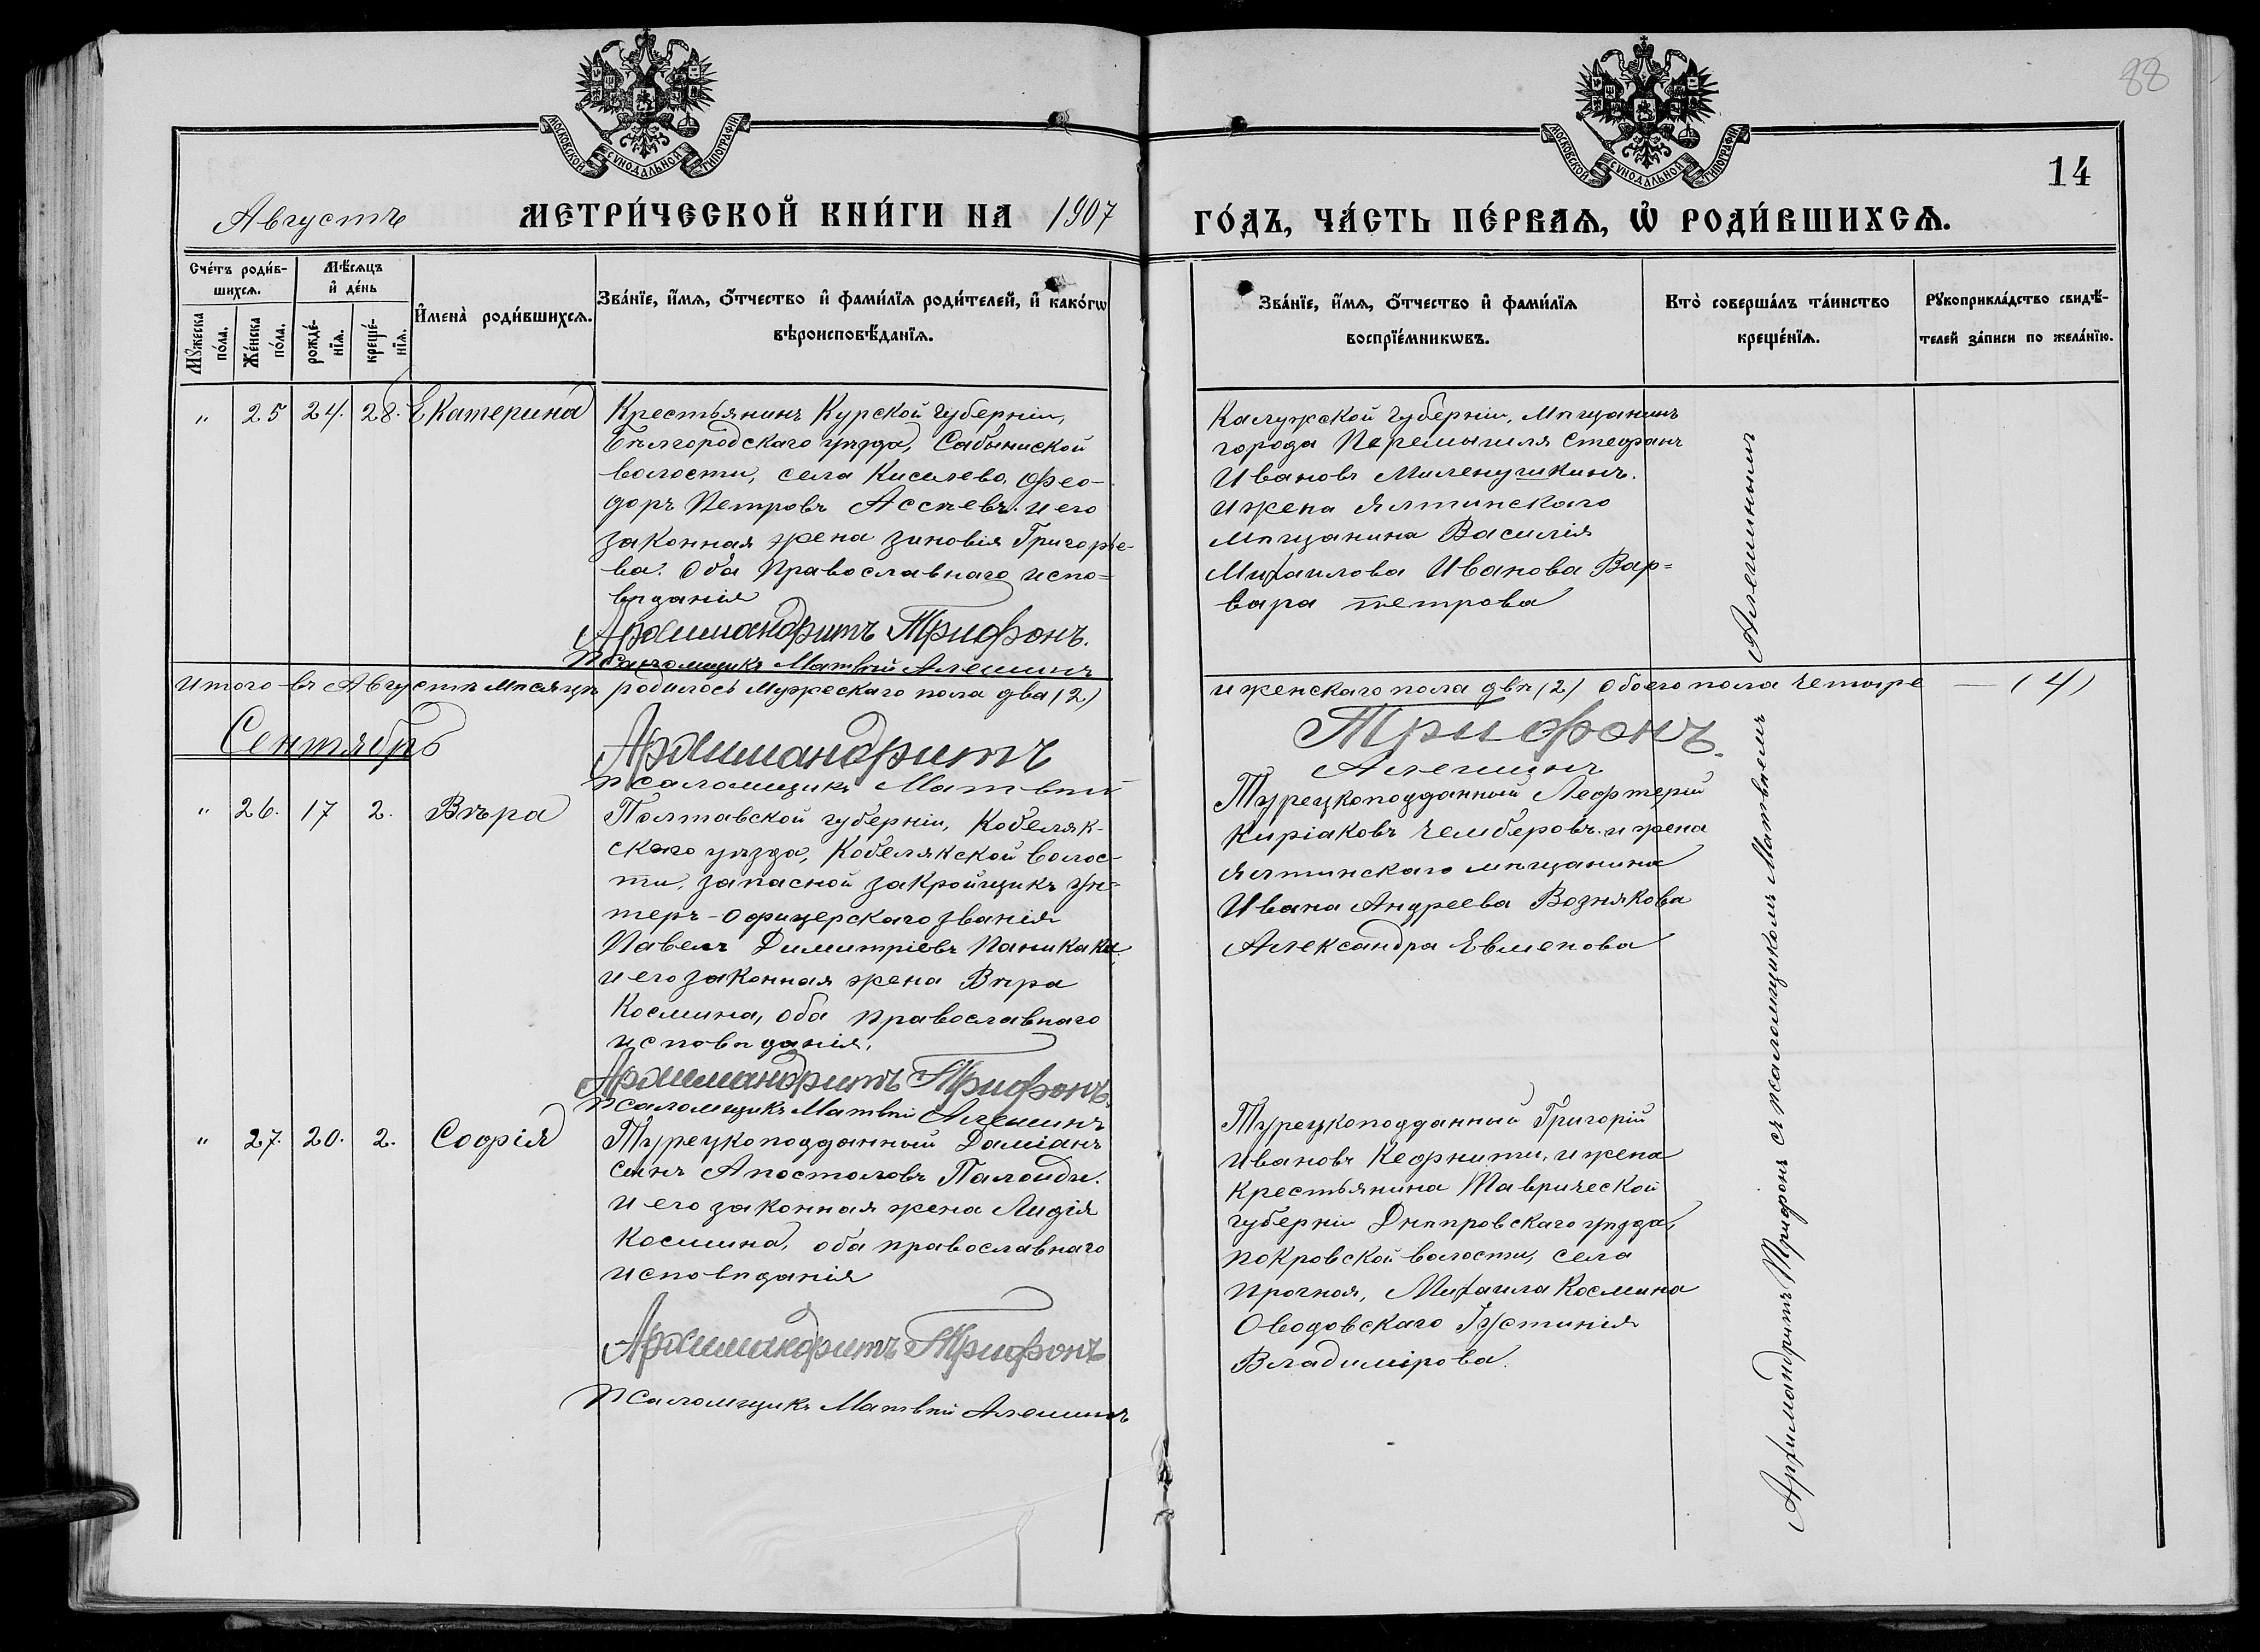 88
МОСКОВСКОЙ СУНОДАЛЬНОЙ ТИПОГРАФІИ
МОСКОВСКОЙ СУНОДАЛЬНОЙ ТИПОГРАФІИ
14
Августъ
МЕТРИ́ЧЕСКОЙ КНИ́ГИ НА 1907 ГО́ДЪ, ЧА́СТЬ ПЕ́РВАѦ, Ѡ҆ РОДИ́ВШИХСѦ.
Сче́тъ роди́в-
шихсѧ.
Мꙋ́жеска по́ла.
Же́нска по́ла.
Мѣ́сѧцъ
и҆ де́нь
рожде́-
нїѧ.
креще́-
нїѧ.
И҆мена̀ роди́вшихсѧ.
Зва́нїе, и҆́мѧ, ѻ҆́тчество и҆ фами́лїѧ роди́телей, и҆ како́гѡ
вѣроисповѣ́данїѧ.
Зва́нїе, и҆́мѧ, ѻ҆́тчество и҆ фами́лїѧ
воспрїе́мникѡвъ.
Кто̀ соверша́лъ та́инство
креще́нїѧ.
Рꙋкоприкла́дство свидѣ́-
телей за́писи по жела́нїю.
" 25 24. 28. Екатерина
Крестьянинъ Курской губерніи,
Бѣлгородскаго уѣзда, Сабынинской
волости, села Киселево, Фео-
доръ Петровъ Ассѣевъ. и его
законная жена Зиновія Григорье-
ва. Оба Православнаго испо=
вѣданія
Архимандритъ Трифонъ.
Псаломщикъ Матвѣй Алешинъ
Калужской губерніи, мѣщанинъ
города Перемышля Стефанъ
Ивановъ Миленушкинъ.
и жена Ялтинскаго
мѣщанина Василія
Михаилова Иванова Вар=
вара Петрова
Итого въ Августѣ мѣсяцѣ родилось мужескаго пола два (2) и женскаго пола двѣ (2) Обоего пола четыре — (4)
Сентябрь
Архимандритъ Трифонъ.
Псаломщикъ Матвѣй Алешинъ
" 26. 17 2. Вѣра
Полтавской губерніи, Кобеляк-
скаго уѣзда, Кобелякской волос-
ти, запасной закройщикъ ун=
теръ-офицерскаго званія
Павелъ Димитріевъ Паникака
и его законная жена Вѣра
Космина, оба православнаго
исповѣданія.
Архимандритъ Трифонъ.
Псаломщикъ Матвѣй Алешинъ
Турецкоподданный Лефтерій
Киріаковъ Чемберовъ. и жена
Ялтинскаго мѣщанина
Ивана Андреева Вознякова
Александра Евменова
" 27. 20. 2. Софія
Турецкоподданный Даміанъ
сынъ Апостоловъ Палоиди.
и его законная жена Лидія
Космина, оба православнаго
исповѣданія
Архимандритъ Трифонъ
Псаломщикъ Матвѣй Алешинъ
Турецкоподданный Григорій
Ивановъ Кефнити, и жена
крестьянина Таврической
губерніи Днѣпровскаго уѣзда,
Покровской волости, села
Прогноя, Михаила Космина
Оводовскаго Іустинія
Владимірова.
Архимандритъ Трифонъ съ псаломщикомъ Матвѣемъ Алешинымъ